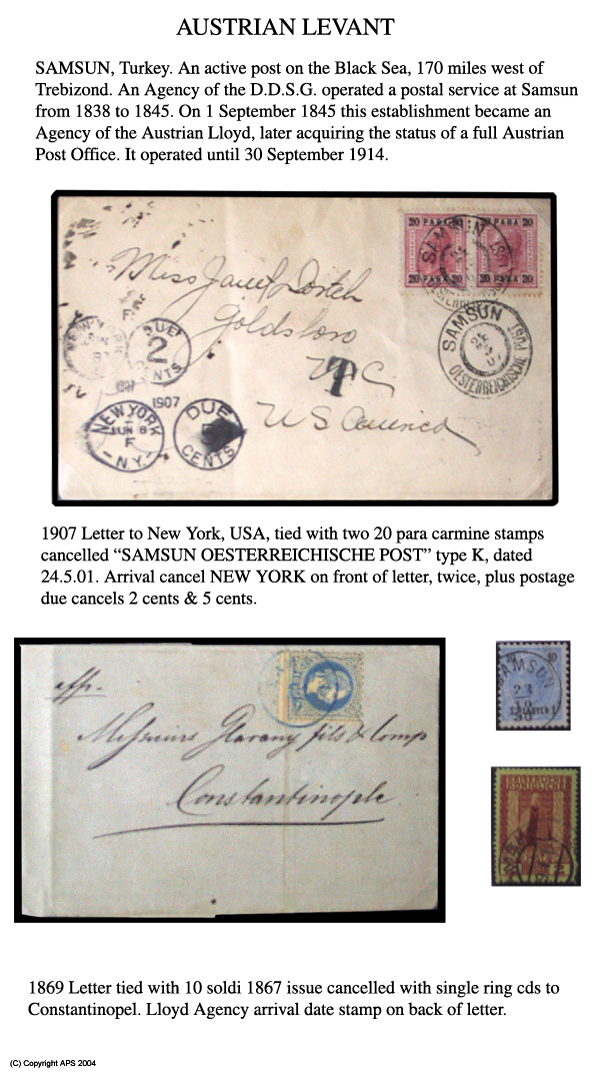 AUSTRIAN LEVANT
SAMSUN, Turkey. An active post on the Black Sea, 170 miles west of
Trebizond. An Agency of the D.D.S.G. operated a postal service at Samsun
from 1838 to 1845. On 1 September 1845 this establishment became an
Agency of the Austrian Lloyd, later acquiring the status of a full Austrian
Post Office. It operated until 30 September 1914.
20 PARA 20 20 PARA 20
20 PARA 20 20 PARA 20
SAMSUN
Miss
Goldsboro
N.C.
U.S. America
T
SAMSUN
OESTERREICHISCHE POST
NEW YORK
DUE
2
CENTS
1907
1907
NEW YORK
JUN 8
F
N.Y.
DUE
CENTS
1907 Letter to New York, USA, tied with two 20 para carmine stamps
cancelled “SAMSUN OESTERREICHISCHE POST” type K, dated
24.5.01. Arrival cancel NEW YORK on front of letter, twice, plus postage
due cancels 2 cents & 5 cents.
Messieurs Glavany fils & Comp
Constantinople
SAMSUN
23
1869 Letter tied with 10 soldi 1867 issue cancelled with single ring cds to
Constantinopel. Lloyd Agency arrival date stamp on back of letter.
(C) Copyright APS 2004